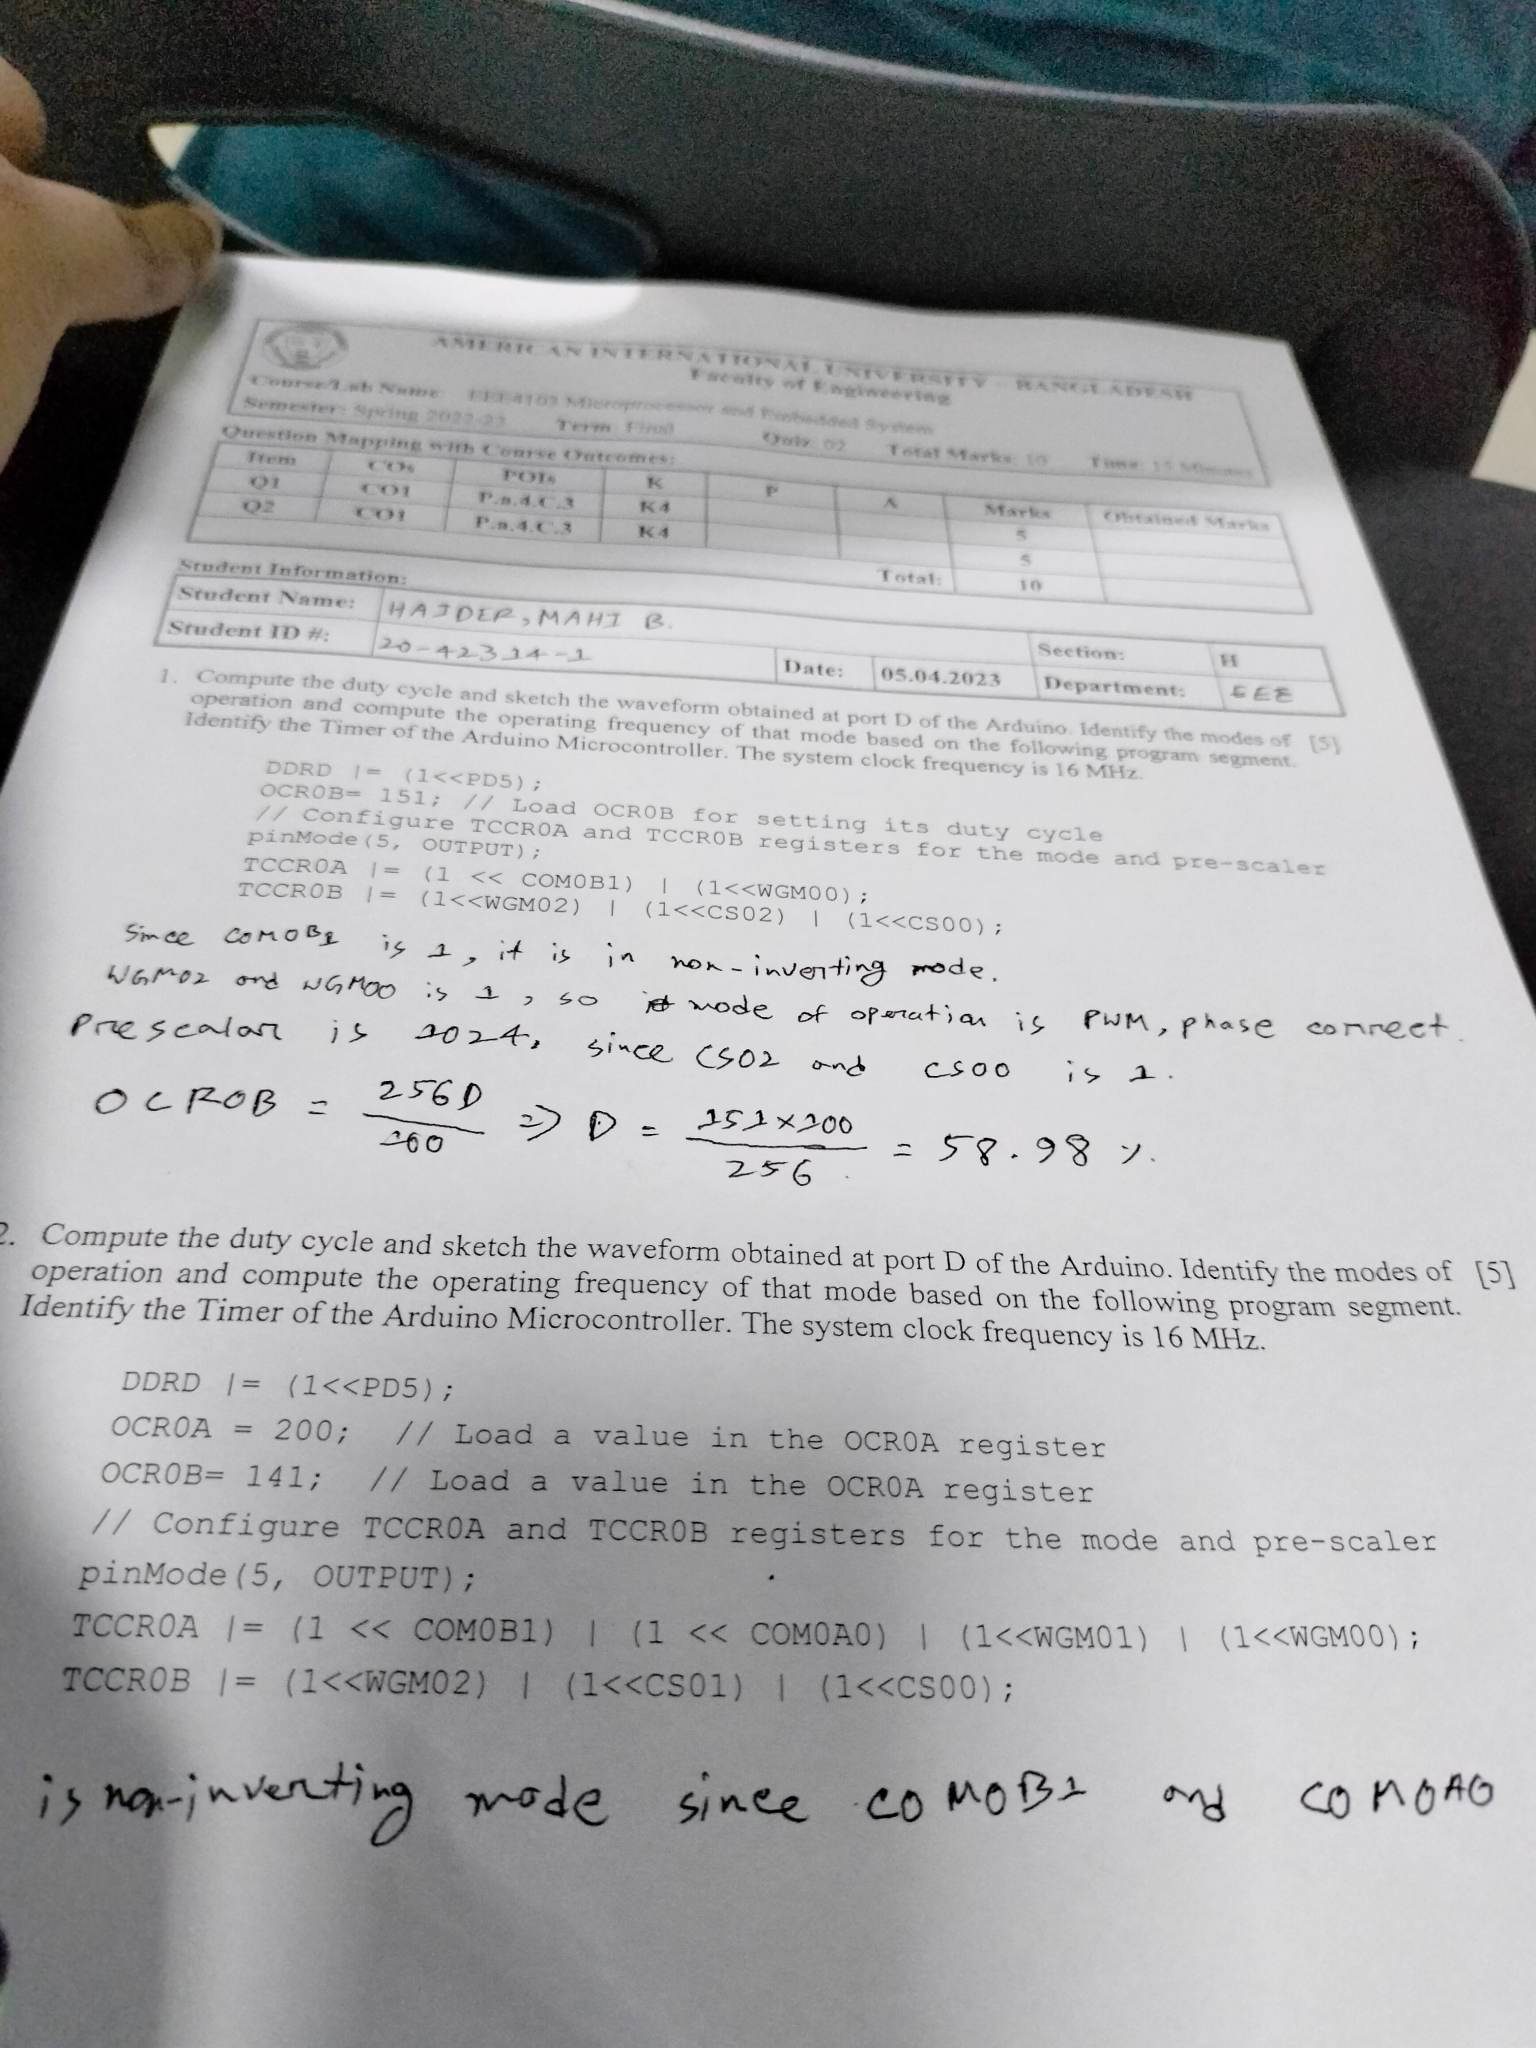 AMERICAN INTERNATIONAL UNIVERSITY – BANGLADESH
Faculty of Engineering
Course/Lab Name: EEE4103 Microprocessor and Embedded System
Semester: Spring 2022-23 Term: Final Quiz: 02 Total Marks: 10 Time: 15 Minutes
Question Mapping with Course Outcomes:
Item COs POIs K P A Marks Obtained Marks
Q1 CO1 P.a.4.C.3 K4 5
Q2 CO1 P.a.4.C.3 K4 5
Total: 10
Student Information:
Student Name: HAIDER, MAHI B. Section: H
Student ID #: 20-42314-1 Date: 05.04.2023 Department: EEE
1. Compute the duty cycle and sketch the waveform obtained at port D of the Arduino. Identify the modes of [5]
operation and compute the operating frequency of that mode based on the following program segment.
Identify the Timer of the Arduino Microcontroller. The system clock frequency is 16 MHz.
DDRD |= (1<<PD5);
OCR0B= 151; // Load OCR0B for setting its duty cycle
// Configure TCCR0A and TCCR0B registers for the mode and pre-scaler
pinMode(5, OUTPUT);
TCCR0A |= (1 << COM0B1) | (1<<WGM00);
TCCR0B |= (1<<WGM02) | (1<<CS02) | (1<<CS00);
Since COMOB1 is 1, it is in non-inverting mode.
WGM02 and WGM00 is 1, so mode of operation is PWM, phase correct.
Prescalar is 1024, since CS02 and CS00 is 1.
OCROB = 256D/100 => D = 151×100/256 = 58.98 %.
2. Compute the duty cycle and sketch the waveform obtained at port D of the Arduino. Identify the modes of [5]
operation and compute the operating frequency of that mode based on the following program segment.
Identify the Timer of the Arduino Microcontroller. The system clock frequency is 16 MHz.
DDRD |= (1<<PD5);
OCR0A = 200; // Load a value in the OCR0A register
OCR0B= 141; // Load a value in the OCR0A register
// Configure TCCR0A and TCCR0B registers for the mode and pre-scaler
pinMode(5, OUTPUT);
TCCR0A |= (1 << COM0B1) | (1 << COM0A0) | (1<<WGM01) | (1<<WGM00);
TCCR0B |= (1<<WGM02) | (1<<CS01) | (1<<CS00);
is non-inverting mode since COMOB1 and COMOAO